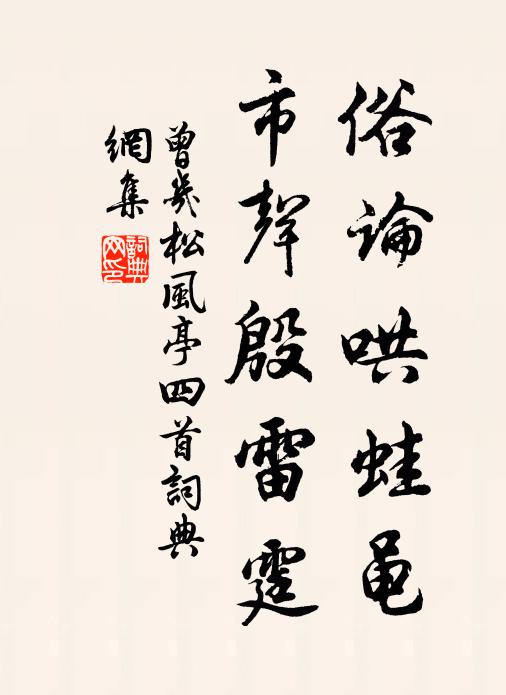 俗論哄蛙黽
市聲殷雷霆
曾幾松風亭四首詞典
網集
詞典網印